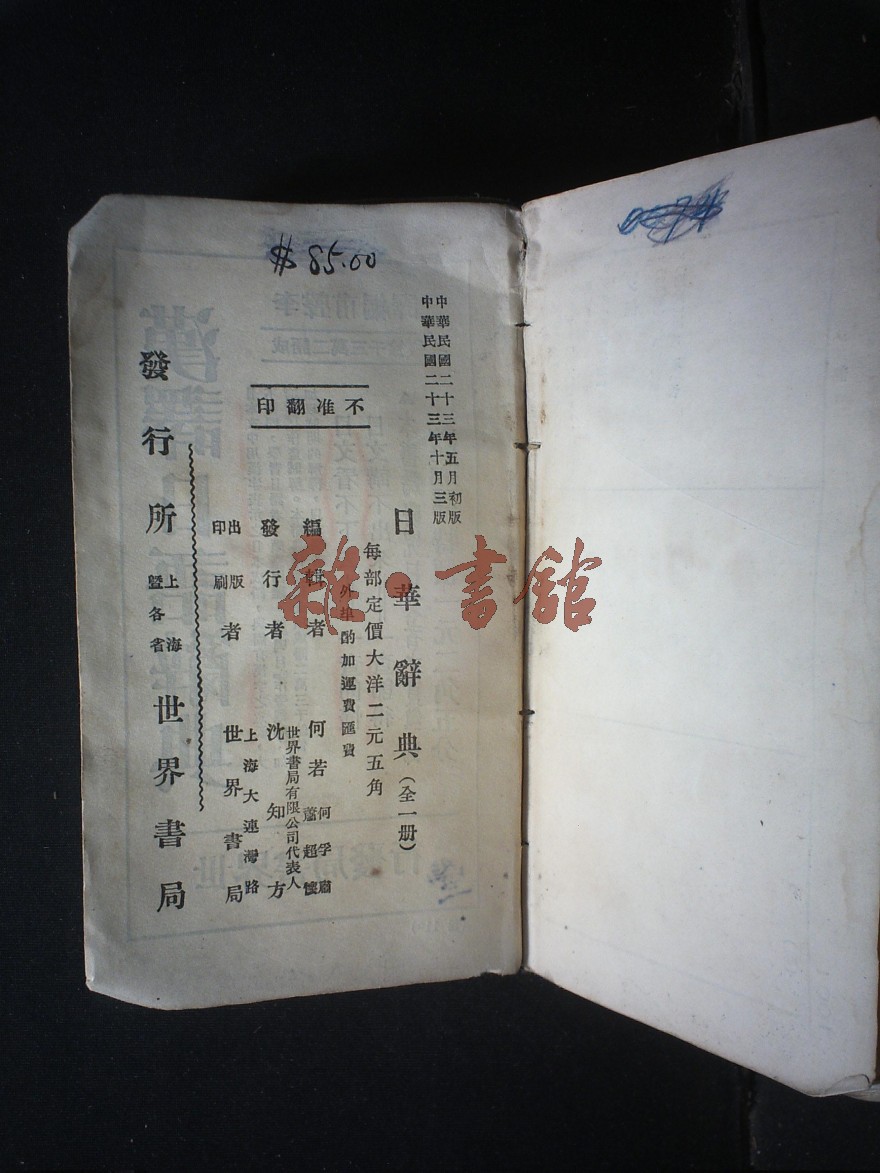 $85.00
中華民國二十三年五月初版
中華民國二十三年十月三版
日華辭典（全一册）
每部定價大洋二元五角
外埠酌加運費匯費
不准翻印
編輯者 何若
發行者 沈知方
世界書局有限公司代表人
出版
印刷
者 世界書局
上海大連灣路
發行所 上海
暨各省 世界書局
雜·書館